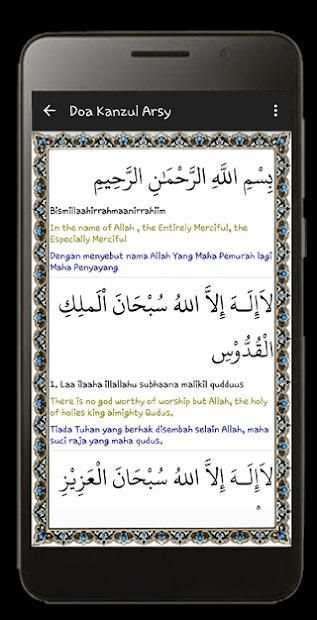 Doa Kanzul Arsy
بِسْمِ اللَّهِ الرَّحْمَٰنِ الرَّحِيمِ
Bismillaahirrahmaanirrahiim
In the name of Allah , the Entirely Merciful, the
Especially Merciful
Dengan menyebut nama Allah Yang Maha Pemurah lagi
Maha Penyayang
لاَإِلَـهَ إِلاَّ اللهُ سُبْحَانَ اْلَملِكِ
الْقُدُّوْسِ
1. Laa ilaaha illallahu subhaana malikil qudduus
There is no god worthy of worship but Allah, the holy
of holies king almighty Qudus.
Tiada Tuhan yang berhak disembah selain Allah, maha
suci raja yang maha qudus.
لاَإِلَـهَ إِلاَّ اللهُ سُبْحَانَ الْعَزِيْزِ